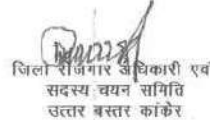 जिला रोजगार अधिकारी एवं
सदस्य चयन समिति
उत्तर बस्तर कांकेर